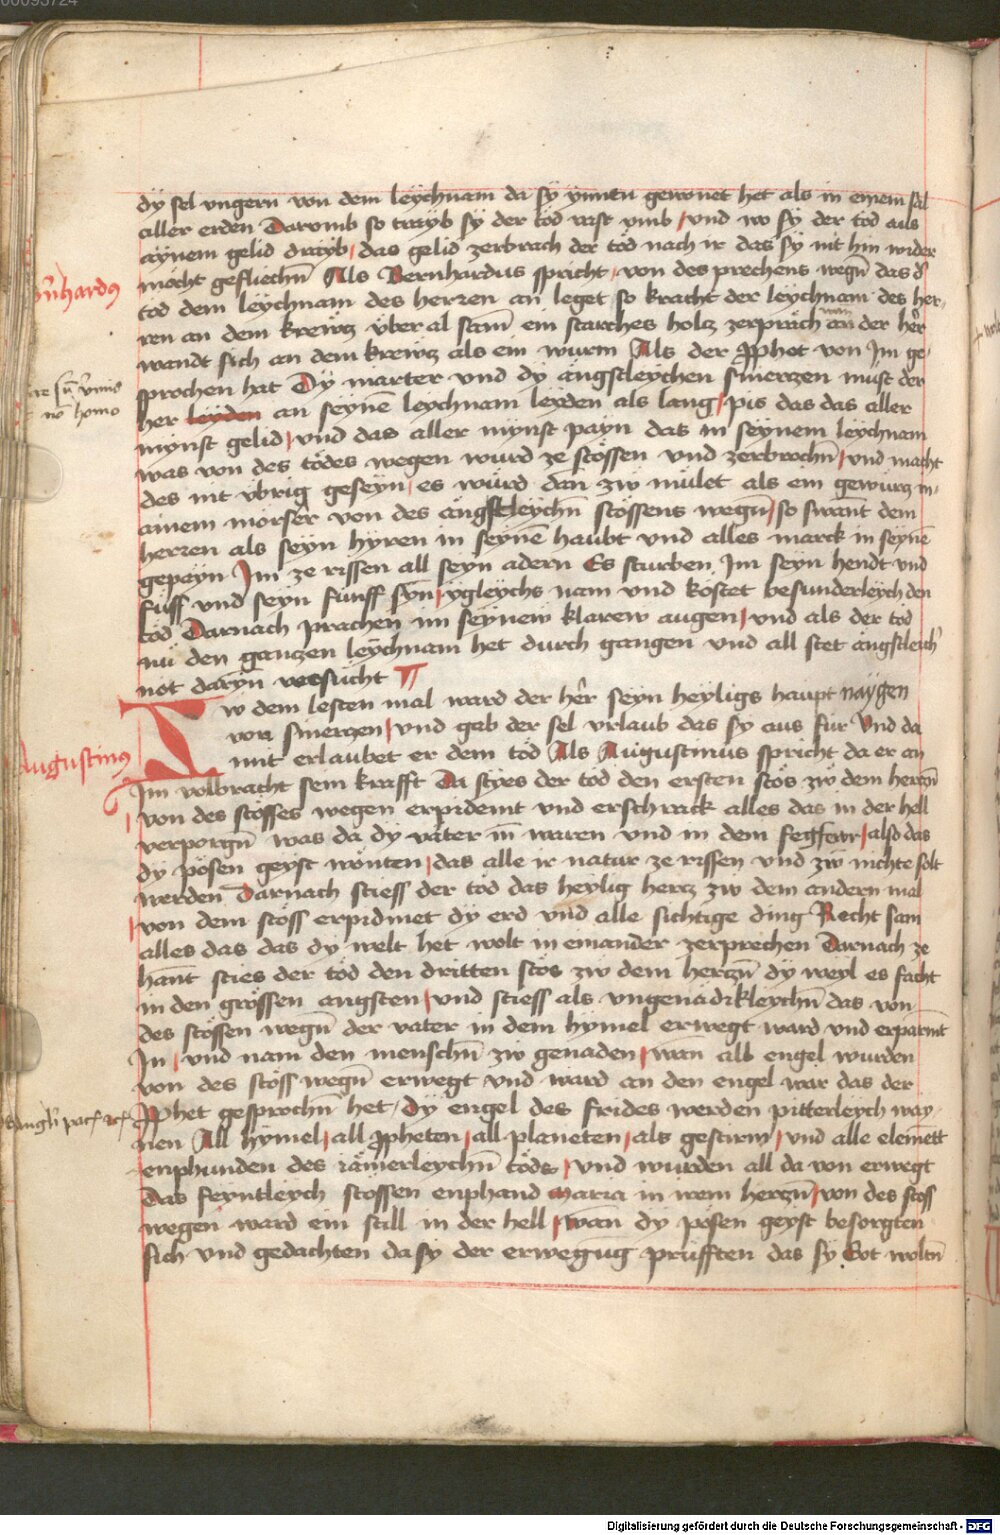 00093724
dÿ sel vngern von dem leÿchnam da sÿ ÿnnen gewonet het als in einem sal
aller erden Darumb so traÿb sÿ der tod vast vmb / vnd wo sÿ der tod aus
aÿnem gelid draÿb / das gelid zerbrach der töd nach ir das sÿ nit hin wider
möcht gefliechn̄ Als Bernhardus spricht / von des prechens wegn̄ das d͛
tod dem leÿchnam des herren an leget / so kracht der leÿchnam des her¬
ren an dem krewtz vber al sam̄ ein starches holtz zerpräch wan der her͛
wandt sich an dem krewtz als ein wurm Als der Ꝓphet von Im ge¬
sprochen hat Dÿ marter vnd dÿ ängstleÿchen smerzen müst der
her leÿden an seÿnē leÿchnam leÿden als lang / pis das das aller
mÿnst gelid / vnd das aller mÿnst paÿn das in seÿnem leÿchnam
was von des tödes wegen würd ze stössen vnd zerbrochn̄ / vnd macht
des nit vbrig geseÿn / es würd dan zw mület als ein gewurtz in
ainem mörser von des ängstleÿchn̄ stössens wegn̄ / so swant dem
herren als seÿn hÿren in seÿnē haubt vnd alles marck in seÿnē
gepaÿn Im ze rissen all seÿn adern Es sturben Im seÿn hendt vnd
füss vnd seÿn fünff sÿn / ÿgleÿchs nam vnd kostet besunderleÿch den
töd Darnach prachen im seÿnew klarew augen / vnd als der tod
nü den gantzen leÿchnam het durch gangen vnd all stet ängstleich͛
not darÿn versücht
Zw dem lesten mal ward der her͛ seÿn heÿligs haupt naÿgen
von smerzen / vnd gab der sel vrlaub das sÿ aus für Vnd da
mit erlaubet er dem töd Als Augustinus spricht da er an
Im volbracht sein krafft Da styes der tod den ersten stös zw dem hertzn̄
von des stösses wegen erpidemt vnd erschrack alles das in der hell
verporgn̄ was da dÿ väter in̄ waren vnd in dem fegfewr / also das
dÿ pösen geÿst wönten / das alle ir natur ze rissen vnd zw nichte solt
werden Darnach stiess der töd das heÿlig hertz zw dem andern mal
/ von dem stöss erpidmet dÿ erd vnd alle sichtige ding Recht sam
alles das das dÿ welt het wolt in einander zerprechen Darnach ze
hant sties der töd den dritten stös zw dem hertzn̄ dÿ weÿl es facht
in den grössen angsten / vnd stiess als vngenädikleÿchn̄ das von
des stössen wegn̄ der vater in dem hÿmel erwegt ward vnd erparmt
In / vnd nam den menschn̄ zw genaden / wan all engel wurden
von des stöss wegn̄ erwegt vnd ward an den engel war das der
Ꝓphet gesprochn̄ het / Dÿ engel des frides werden pitterleÿch waÿ¬
nen All hÿmel / all Ꝓpheten / all planeten / als gestirm / vnd alle elemett
enphunden des iämerleÿchn̄ töds / vnd wurden all da von erwegt
Das feÿntleÿch stossen enphand Maria in irem hertzn̄ / von des stöss
wegen ward ein still in der hell / wan dÿ pösen geÿst besorgten
sich vnd gedachten da sÿ der erwegūg prüfften das sÿ Got woltn̄
Augustinus
Digitalisierung gefördert durch die Deutsche Forschungsgemeinschaft - DFG